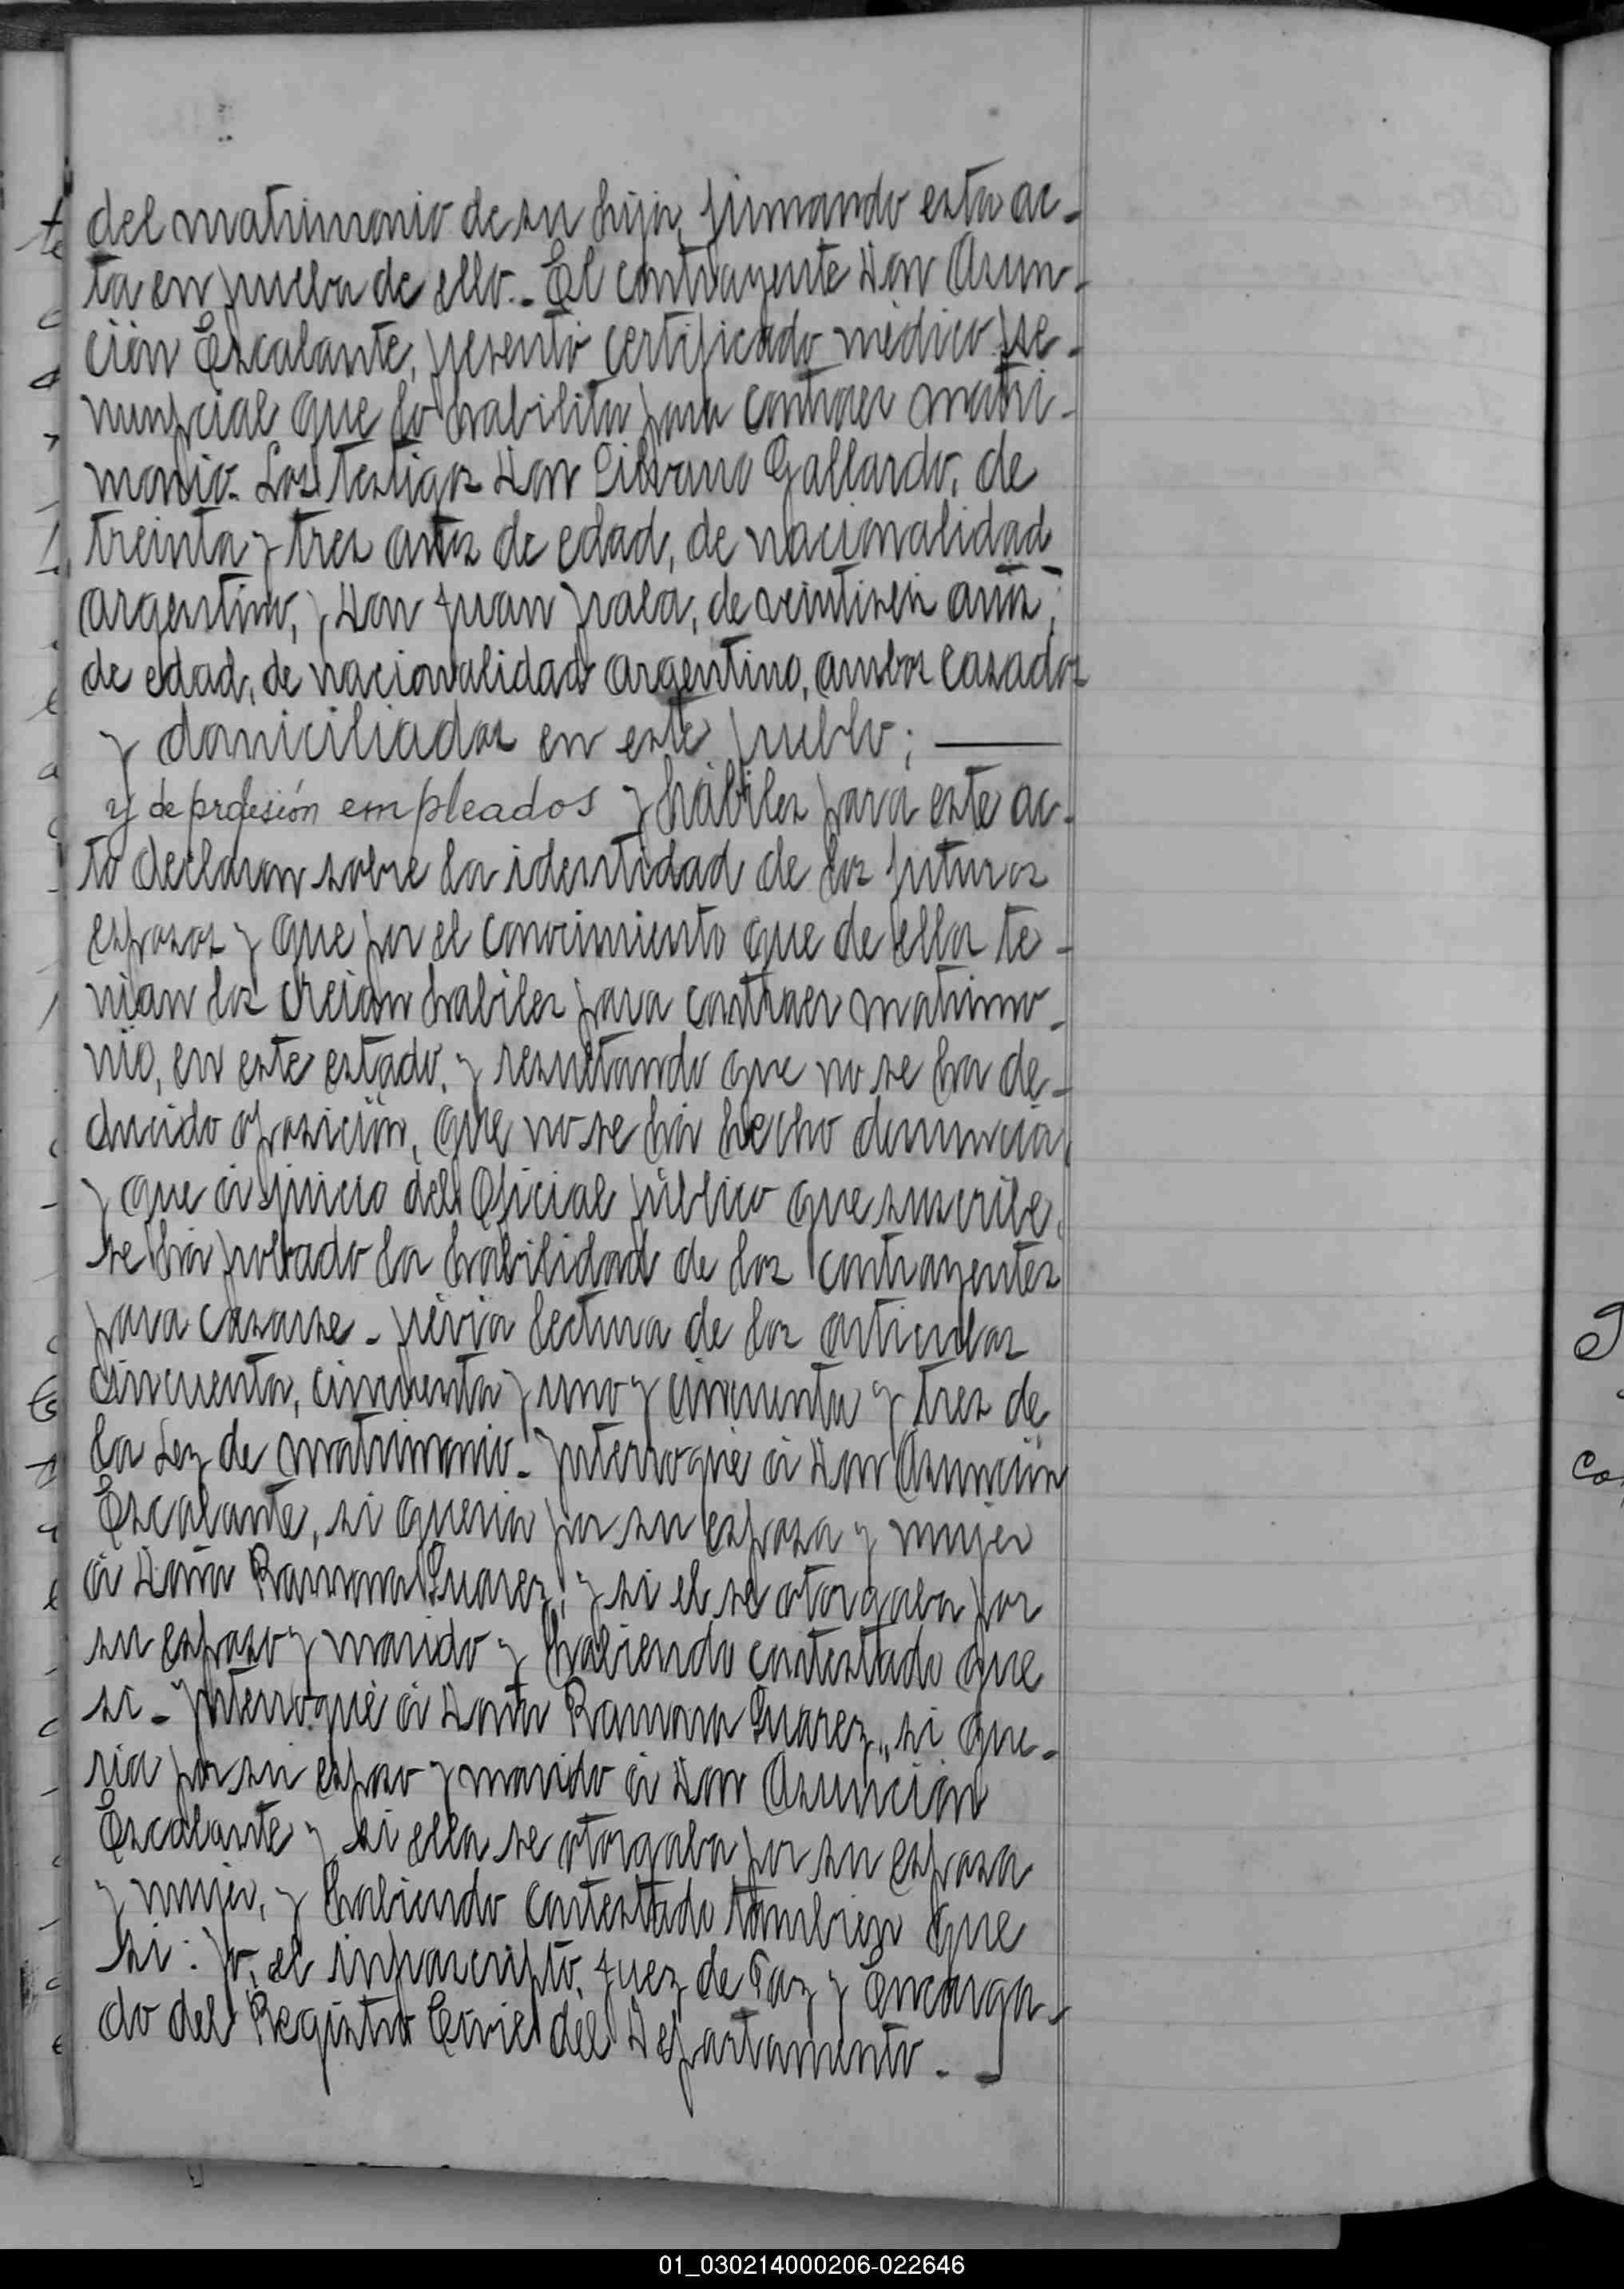 del matrimonio de su hija, firmando esta ac-
ta en prueba de ello.- El contrayente Don Asun-
ción Escalante, presentó certificado médico pre-
nunpcial que lo habilita para contraer matri-
monio. Los testigos Don Silvano Gallardo, de
treinta y tres años de edad, de nacionalidad
argentino, y Don Juan, de veintiseis años
de edad, de nacionalidad argentino, ambos casados
y domiciliados en este pueblo; ———
y de profesión empleados y hábiles para este ac-
to declaron sobre la identidad de los futuros
esposos y que por el conocimiento que de ellos te-
nian los creian habiles para contraer matrimo-
nio, en este estado, y resultando que no se ha de-
ducido oposición, que no se há hecho denuncia,
y que á juicio del Oficial público que suscribe,
se há probado la habilidad de los contrayentes
para casarse - prévia lectura de los articulos
cincuenta, cincuenta y uno y cincuenta y tres de
la Ley de matrimonio. - Ynterrogué á Don Asunción
Escalante, si queria por su esposa y mujer
á Doña Ramona Suarez, y si el se otorgaba por
su esposo y marido y habiendo contestado que
si - Ynterrogué á Doña Ramona Suarez,, si que-
ria por su esposo y marido á Don Asunción
Escalante y si ella se otorgaba por su esposa
y mujer, y habiendo contestado tambien que
si: Yo, el infrascripto, Juez de Paz y Encarga-
do del Registro Civil del Departamento. -
01_030214000206-022646